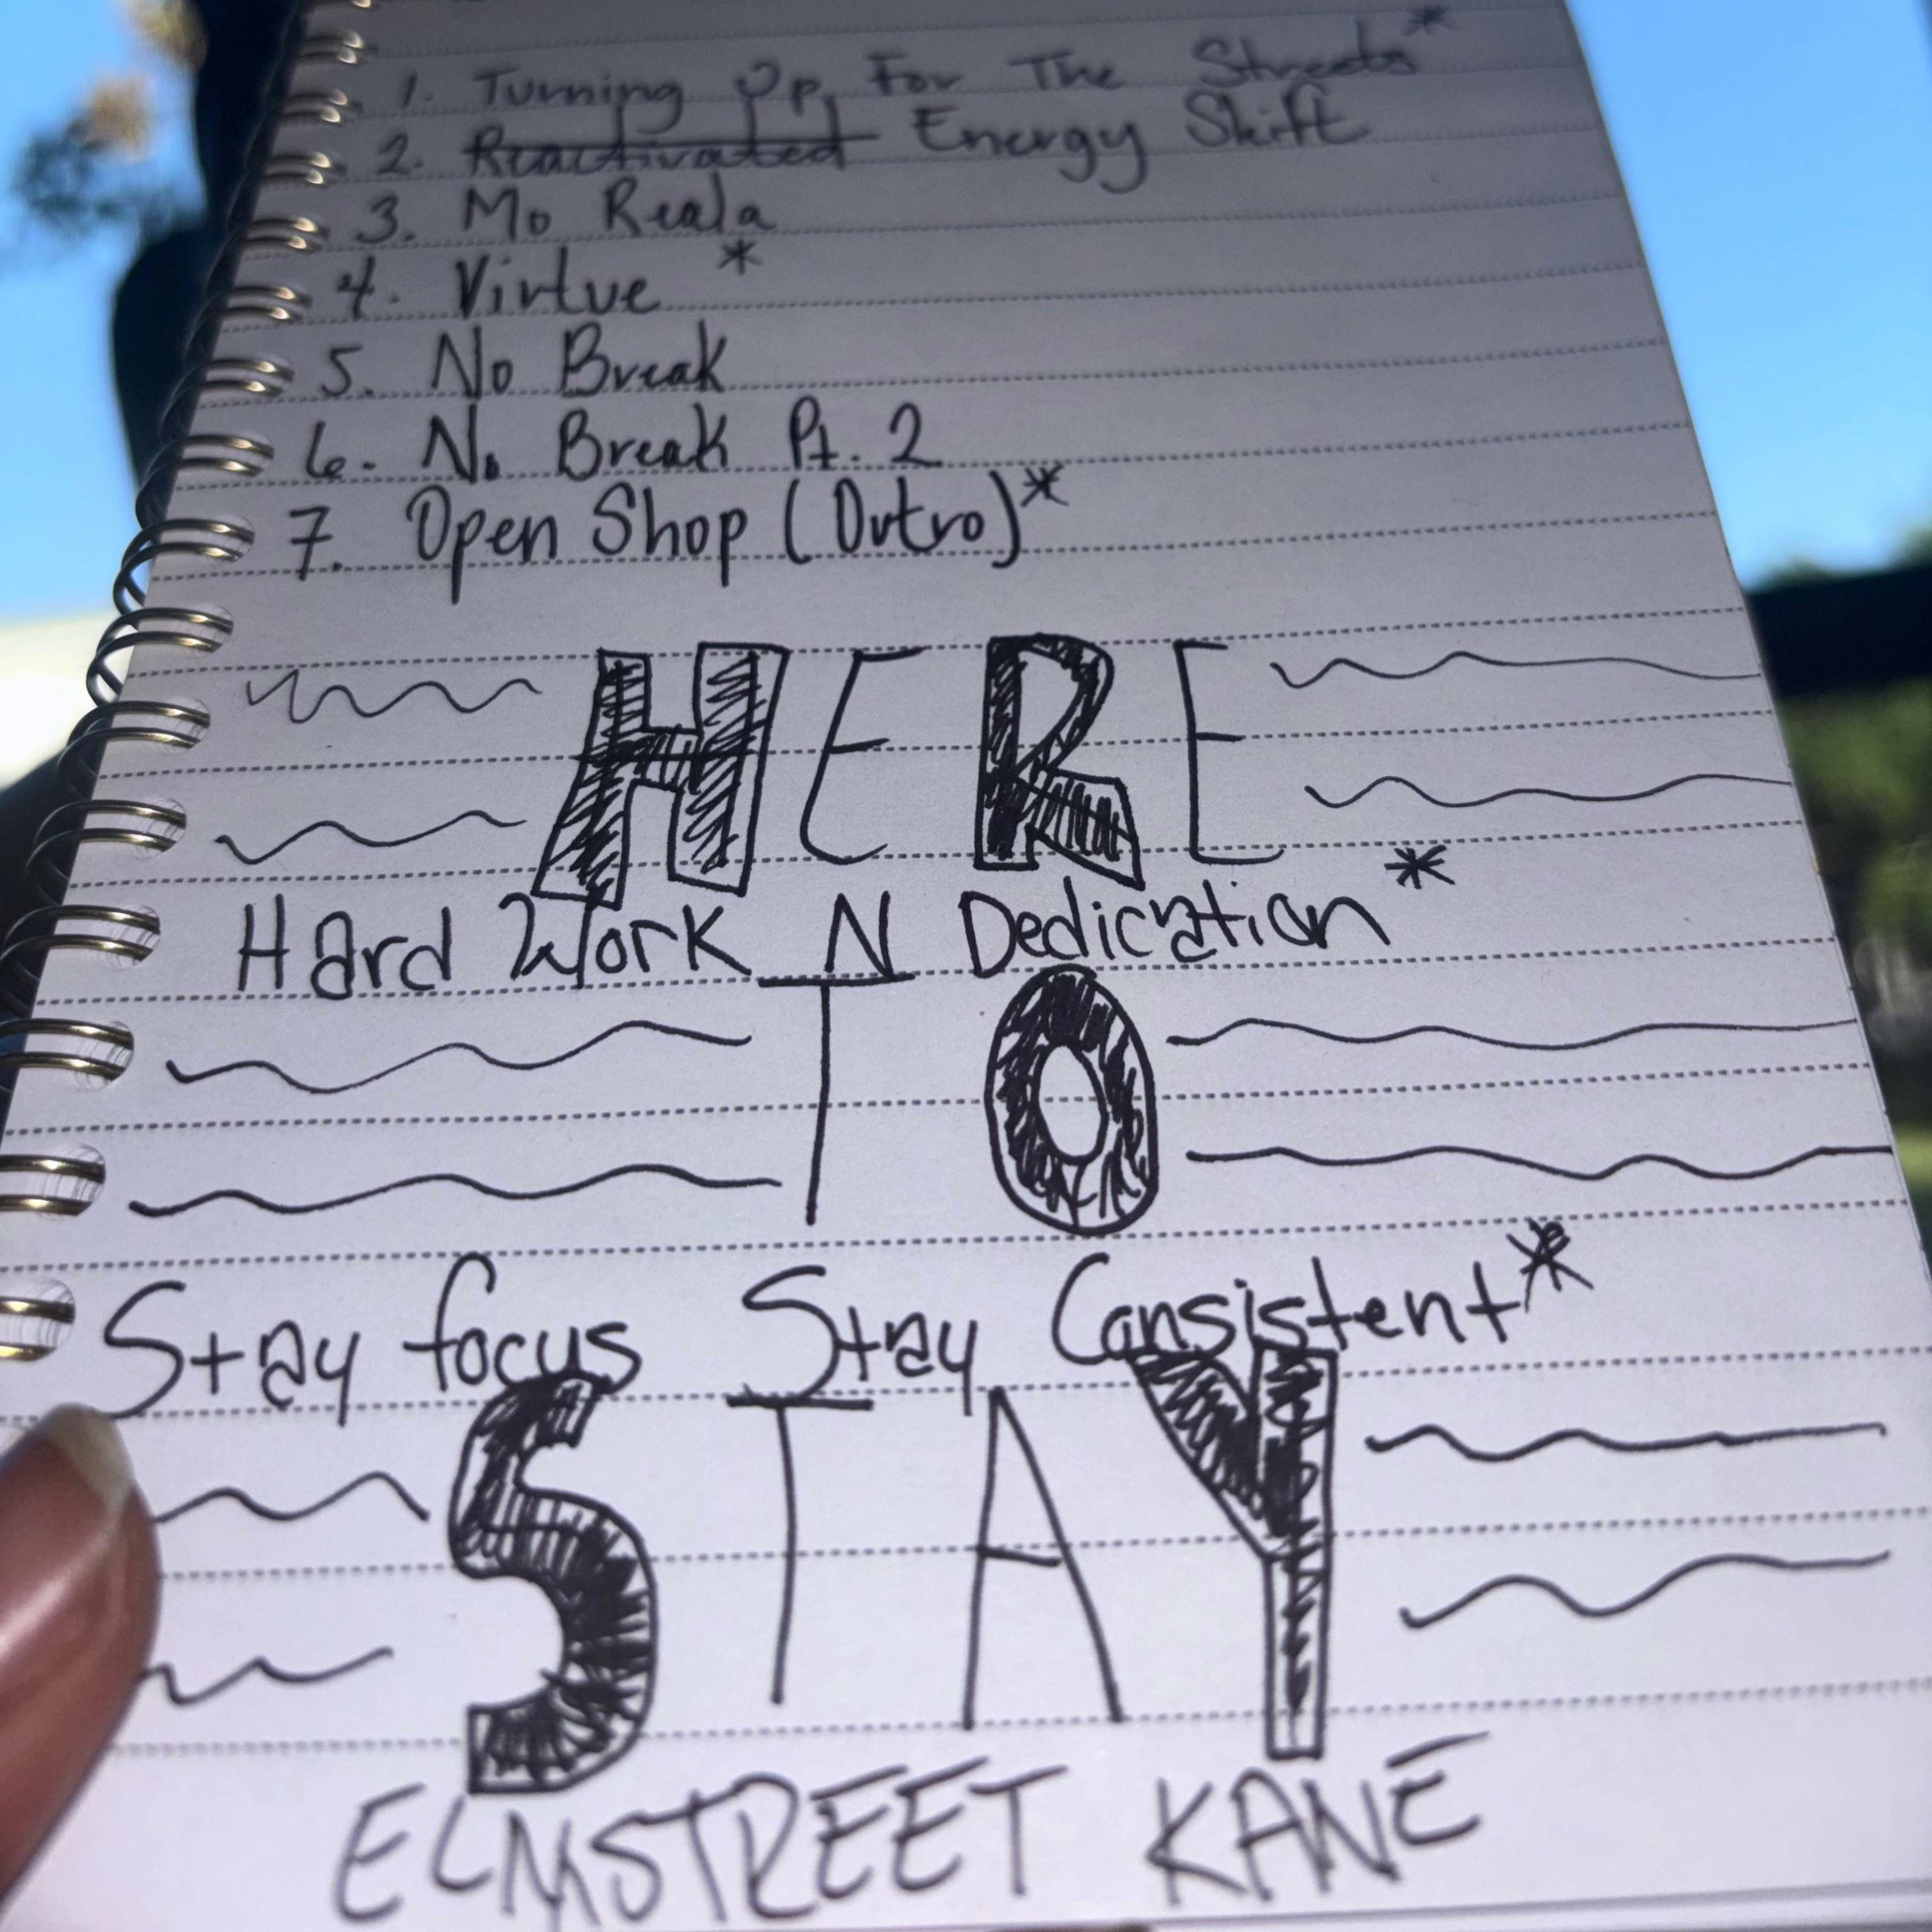 1. Turning Up For The Streets*
2. Reactivated Energy Shift
3. Mo Reala
4. Virtue *
5. No Break
6. No Break Pt. 2
7. Open Shop (Outro)*
HERE
Hard Work N Dedication*
TO
Stay focus Stay Consistent*
STAY
ELMSTREET KANE